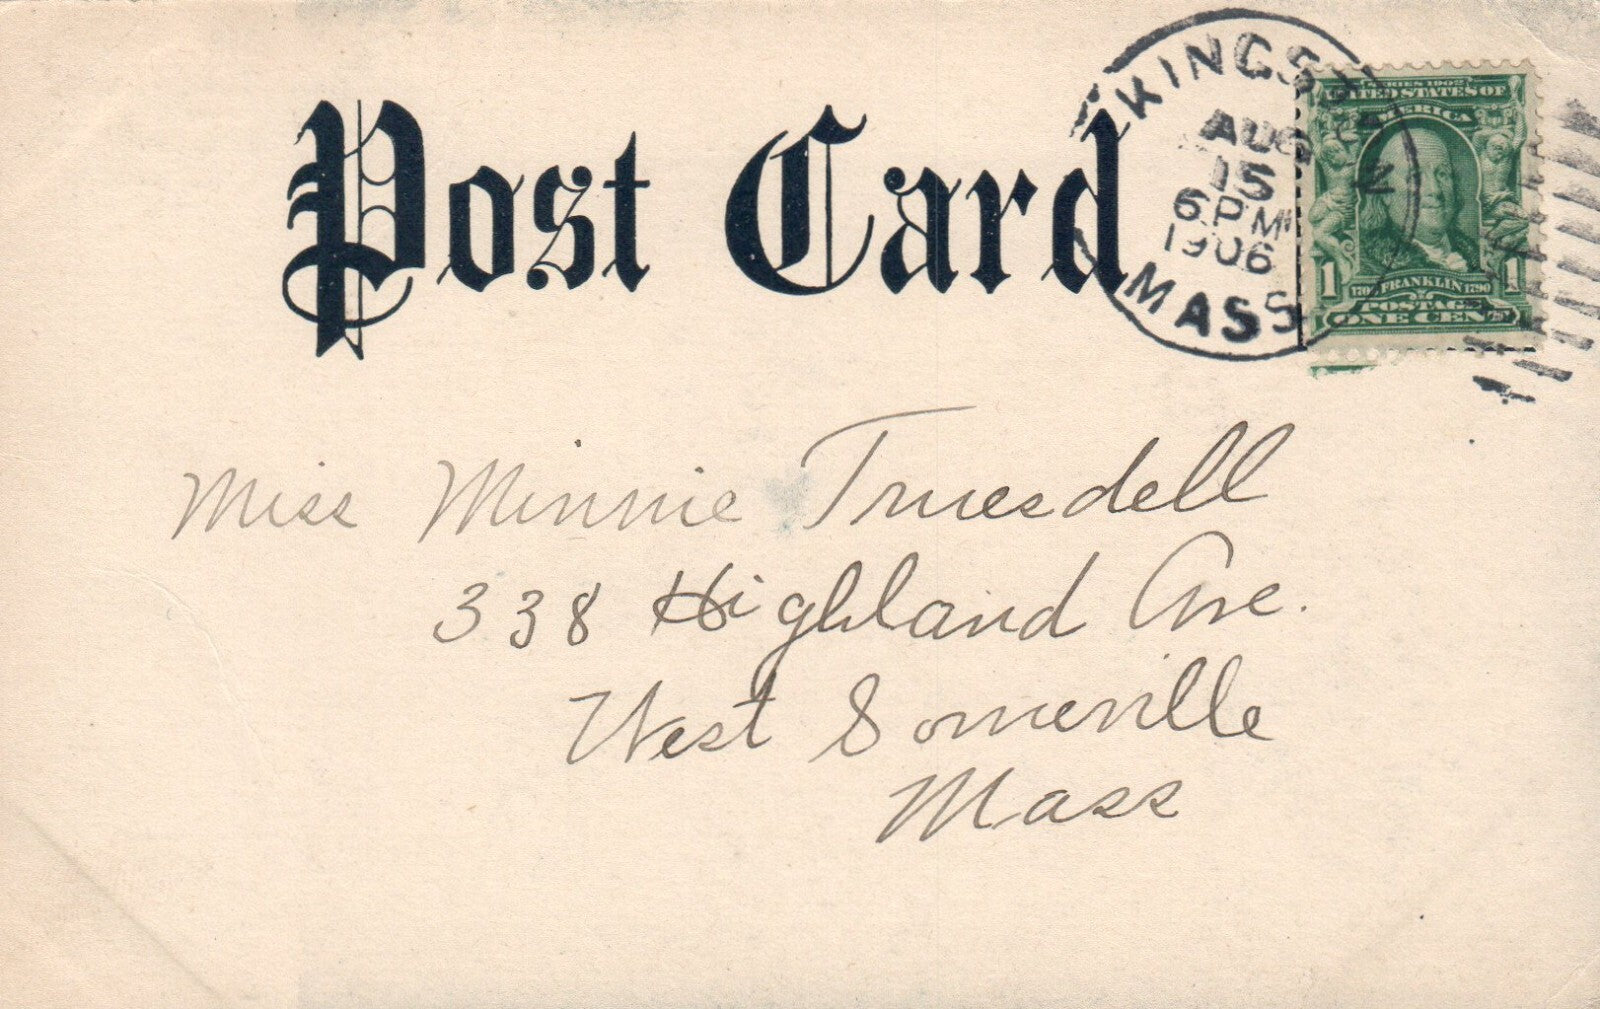 Post Card
KINGSTON
AUG
15
6 PM
1906
MASS.
SERIES 1902
UNITED STATES OF
AMERICA
1706 FRANKLIN 1790
1 1
POSTAGE
ONE CENT
Miss Minnie Truesdell
338 Highland Ave.
West Somerville
Mass